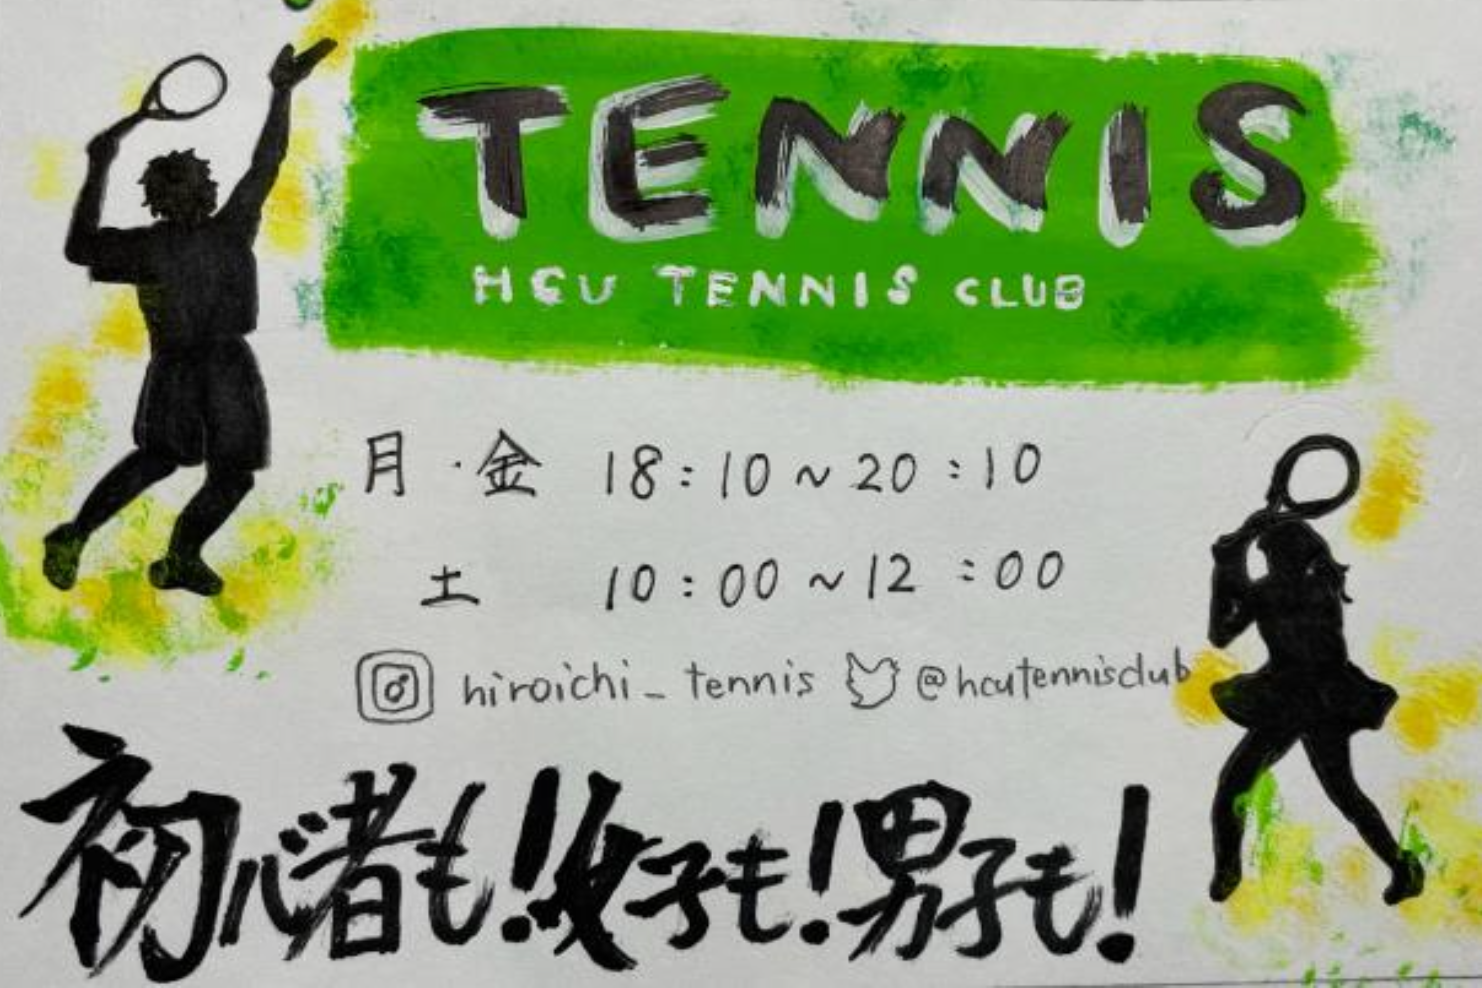 TENNIS
HCU TENNIS CLUB
月・金 18:10~20:10
土 10:00~12:00
hiroichi_tennis @hcutennisclub
初心者も!女子も!男子も!